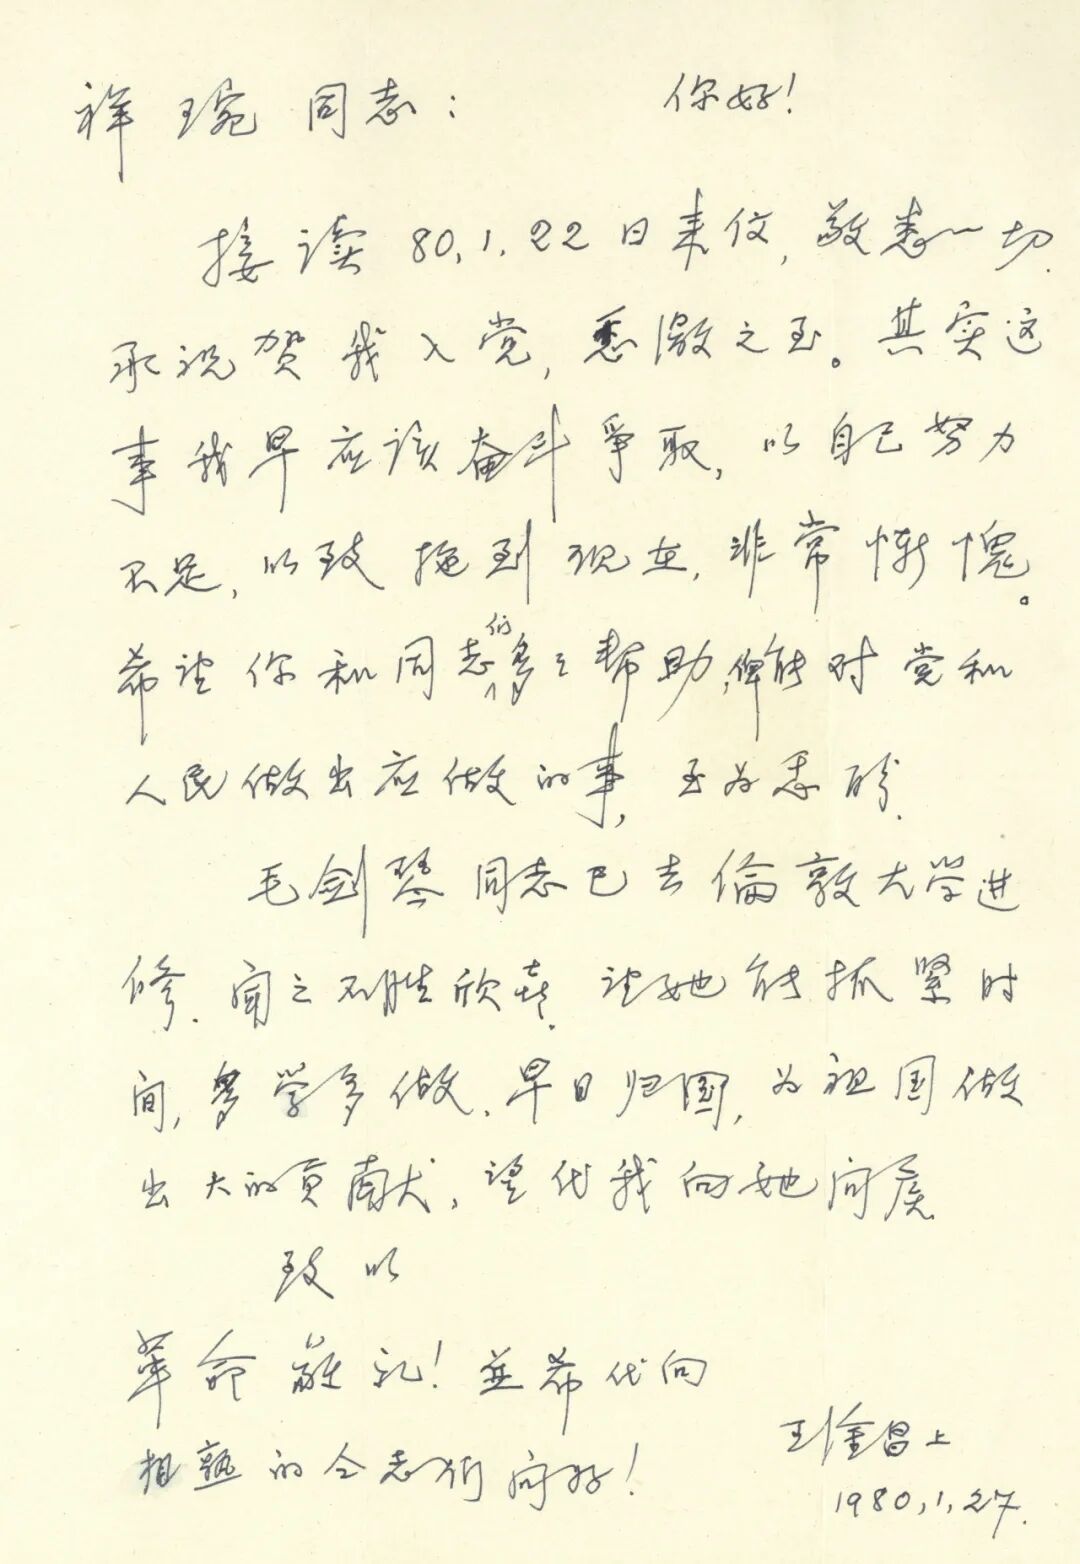 祥琬同志： 你好！
接读80.1.22日来信，敬悉一切.
承祝贺我入党，感激之至。其实这
事我早应该奋斗争取，以自己努力
不足，以致拖到现在，非常惭愧。
希望你和同志们多多帮助，俾能对党和
人民做出应做的事，至为恳盼.
毛剑琴同志已去倫敦大学进
修.闻之不胜欣喜.望她能抓紧时
间，多学多做.早日归国，为祖国做
出大的贡献，望代我向她问候.
致以
革命敬礼！並希代向
相熟的同志们问好！
王淦昌上
1980.1.27.